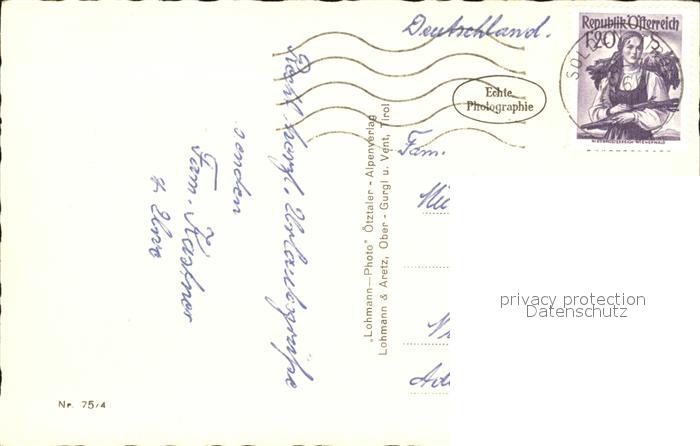 Deutschland.
Republik Österreich
1.20
SÖL
Echte
Photographie
Recht herzl. Urlaubsgrüße
senden
Fam. Kastner
„Lohmann—Photo" Ötztaler - Alpenverlag
Lohmann & Aretz, Ober - Gurgl u. Vent, Tirol
Fam.
privacy protection
Datenschutz
Nr. 75/4